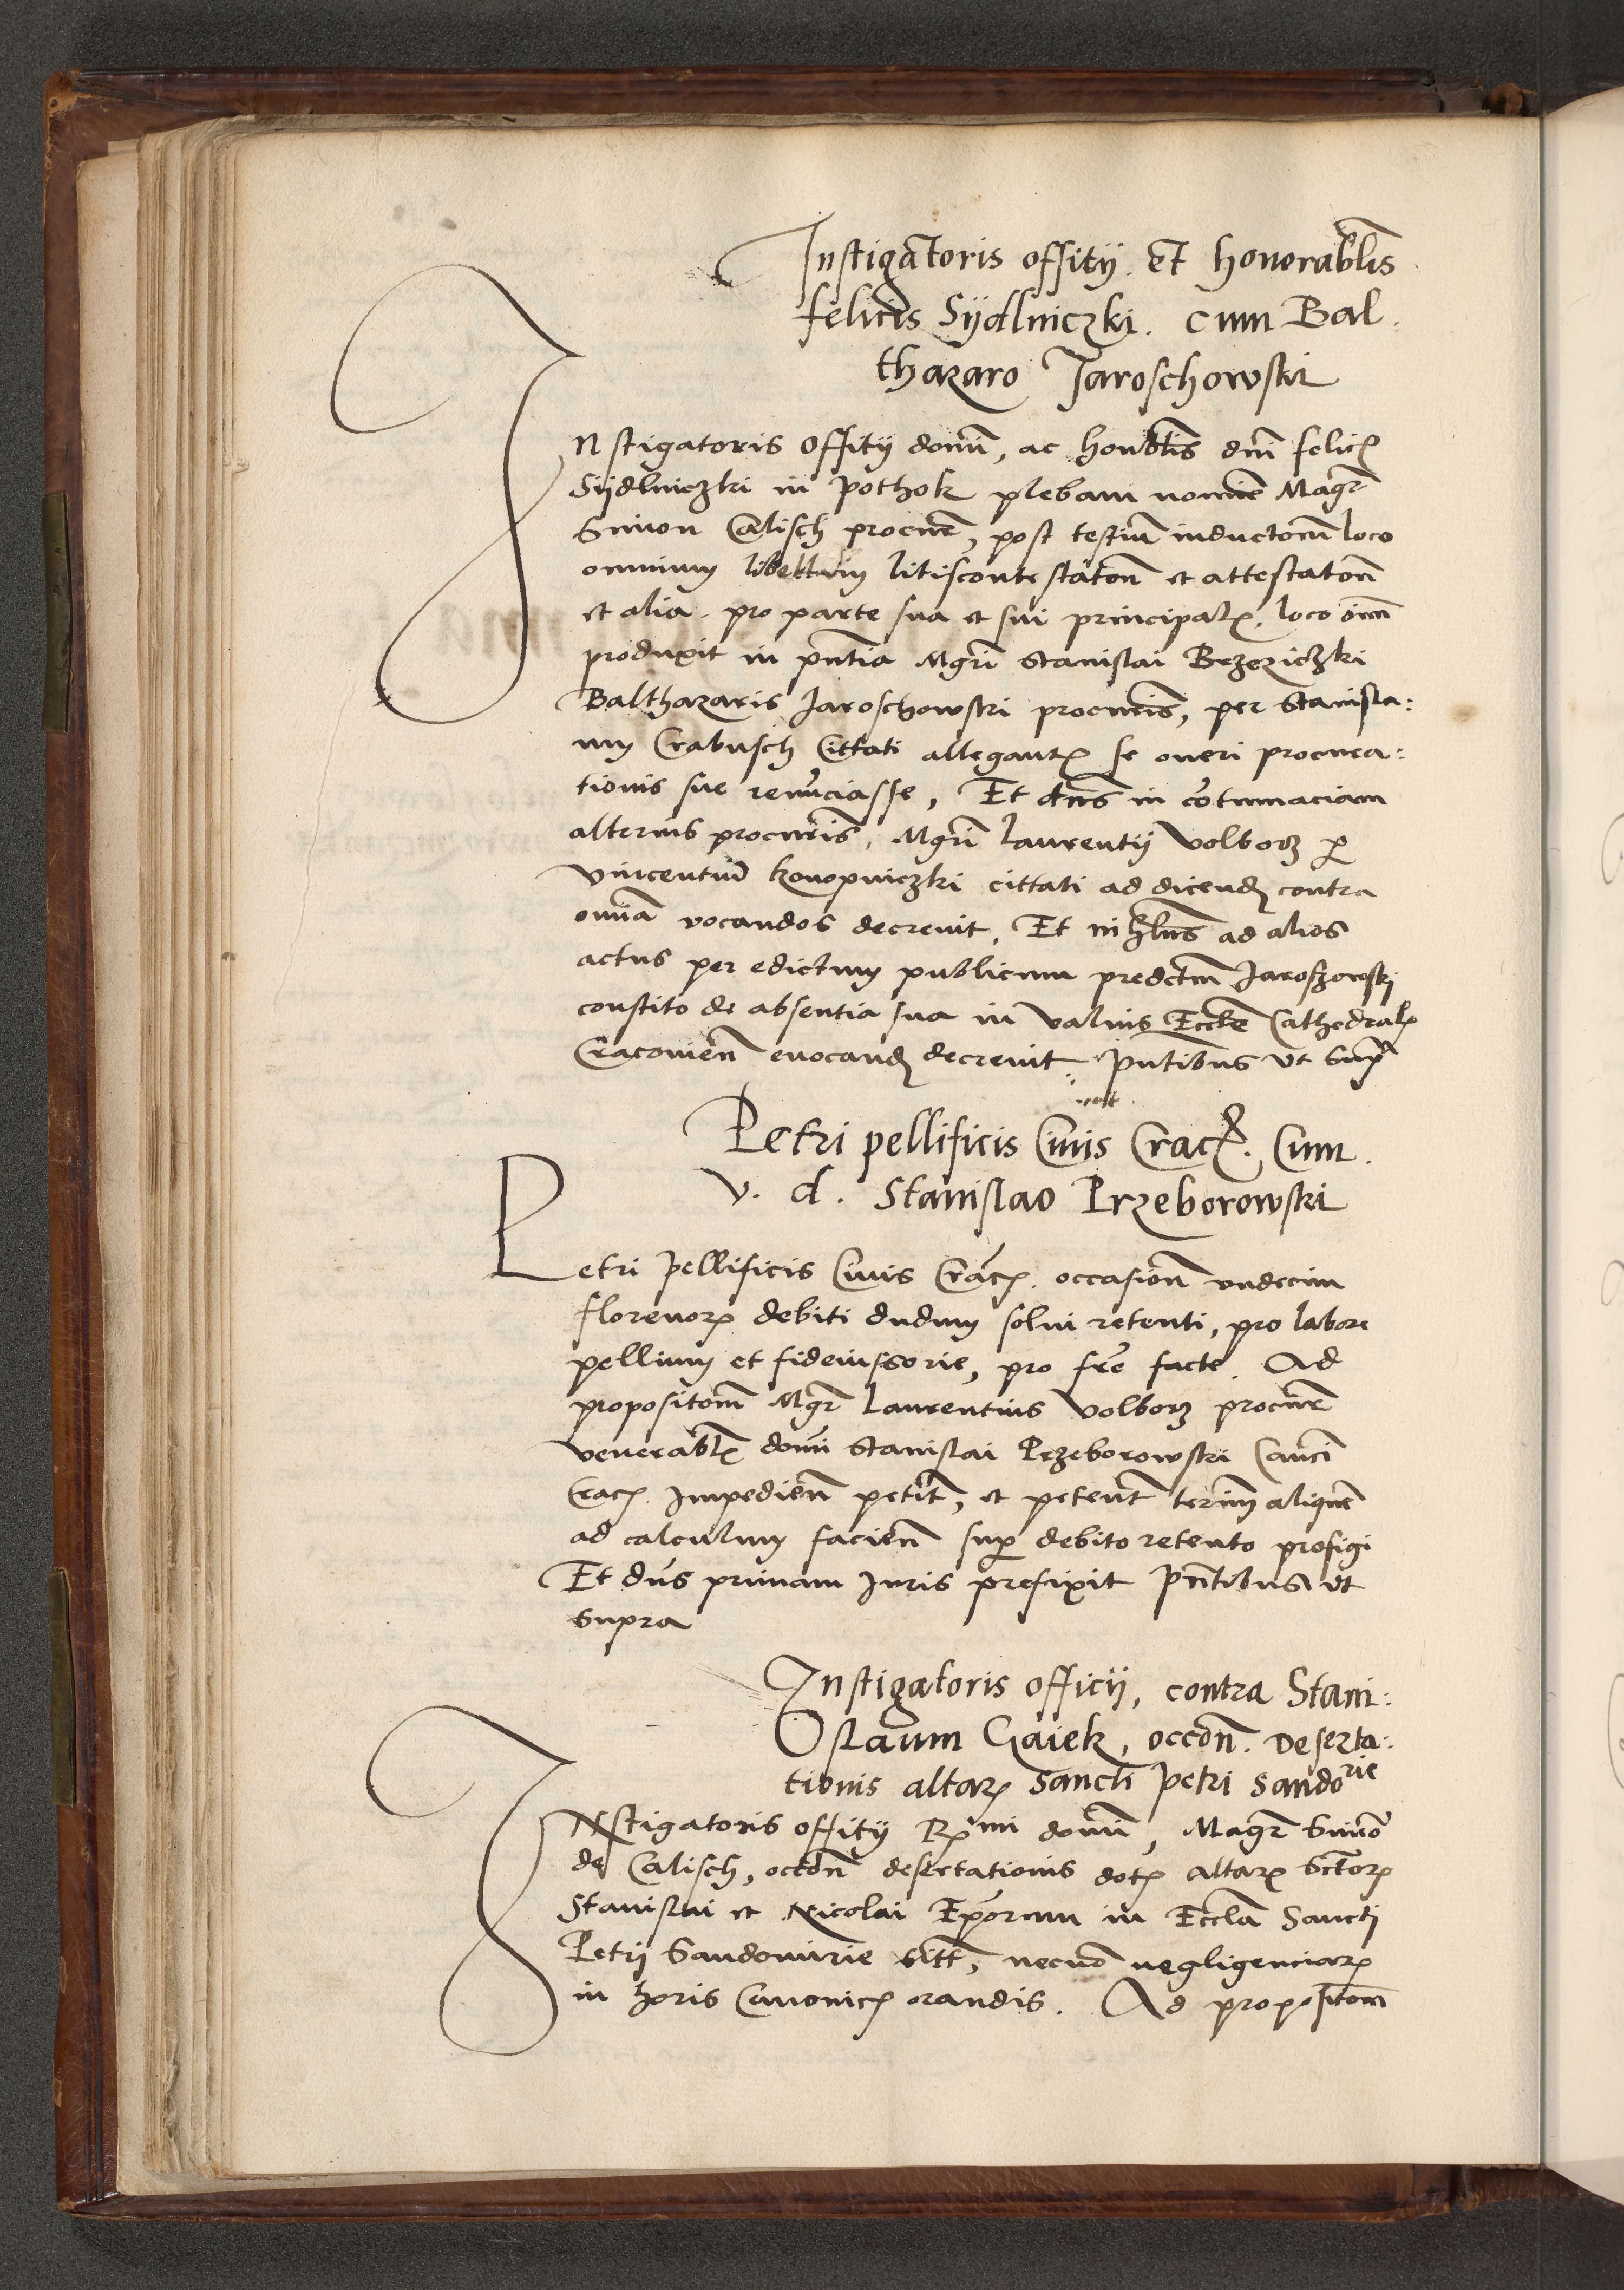 Instigatoris offitij. et honorablis
felicis Sijdlniczki. cum Bal
thazaro Jaroschowski
Instigatoris offitij domi, ac honoblis dni felic
Sijdlniczki in pothok plebani nomie Magr
Simon Calisch procure, post testiu inductom loco
omnium libelluin litiscontestaton et attestaton
et alia pro parte sua et sui principal. loco oim
produxit in pntia Mgri Stanislai Brzeziczki
Balthazaris Jaroschowski procuris, per Stanisla:
um Crabusch Cittati allegant se oneri procura:
tionis sue renuciasse, Et dns in cotumaciam
alterius procuris, Mgri Laurentij Volborz p
Vincentiu konopniczki cittati ad dicend contra
omia vocandos decrevit. Et nihlns ad alios
actus per edictum publicum predctm Jaroszowski
constito de absentia sua in valvis Eccle Cathedral
Cracovien evocand decrevit pntibus vt supr
Petri pellificis Civis Crac. Cum
v. d. Stanislao Przeborowski
Petri pellificis Civis Crac. occasion vndecim
florenor debiti dudum solui retenti, pro labore
pellium et fideiussorie, pro fre facte. Ad
propositom Mgr Laurentius Volborz procure
venerabl domi Stanislai Przeborowski Canci
Crac. Impedien petit, et petent termi alique
ad calculum facien sup debito retento prefigi
Et dns primam Juris prefixit pntibus vt
supra
Instigatoris officij, contra Stani:
slaum Gaiek, occon. Deserta:
tionis altar Sancti Petri Sandorie
INstigatoris offitij Rmi domi, Magr Simo
de Calisch, occon desertationis dot altar Sctor
Stanislai et Nicolai Eporum in Eccla Sancti
Petrij Sandomirie sitt, necno negligenciar
in horis Canonic orandis. Ad propositom